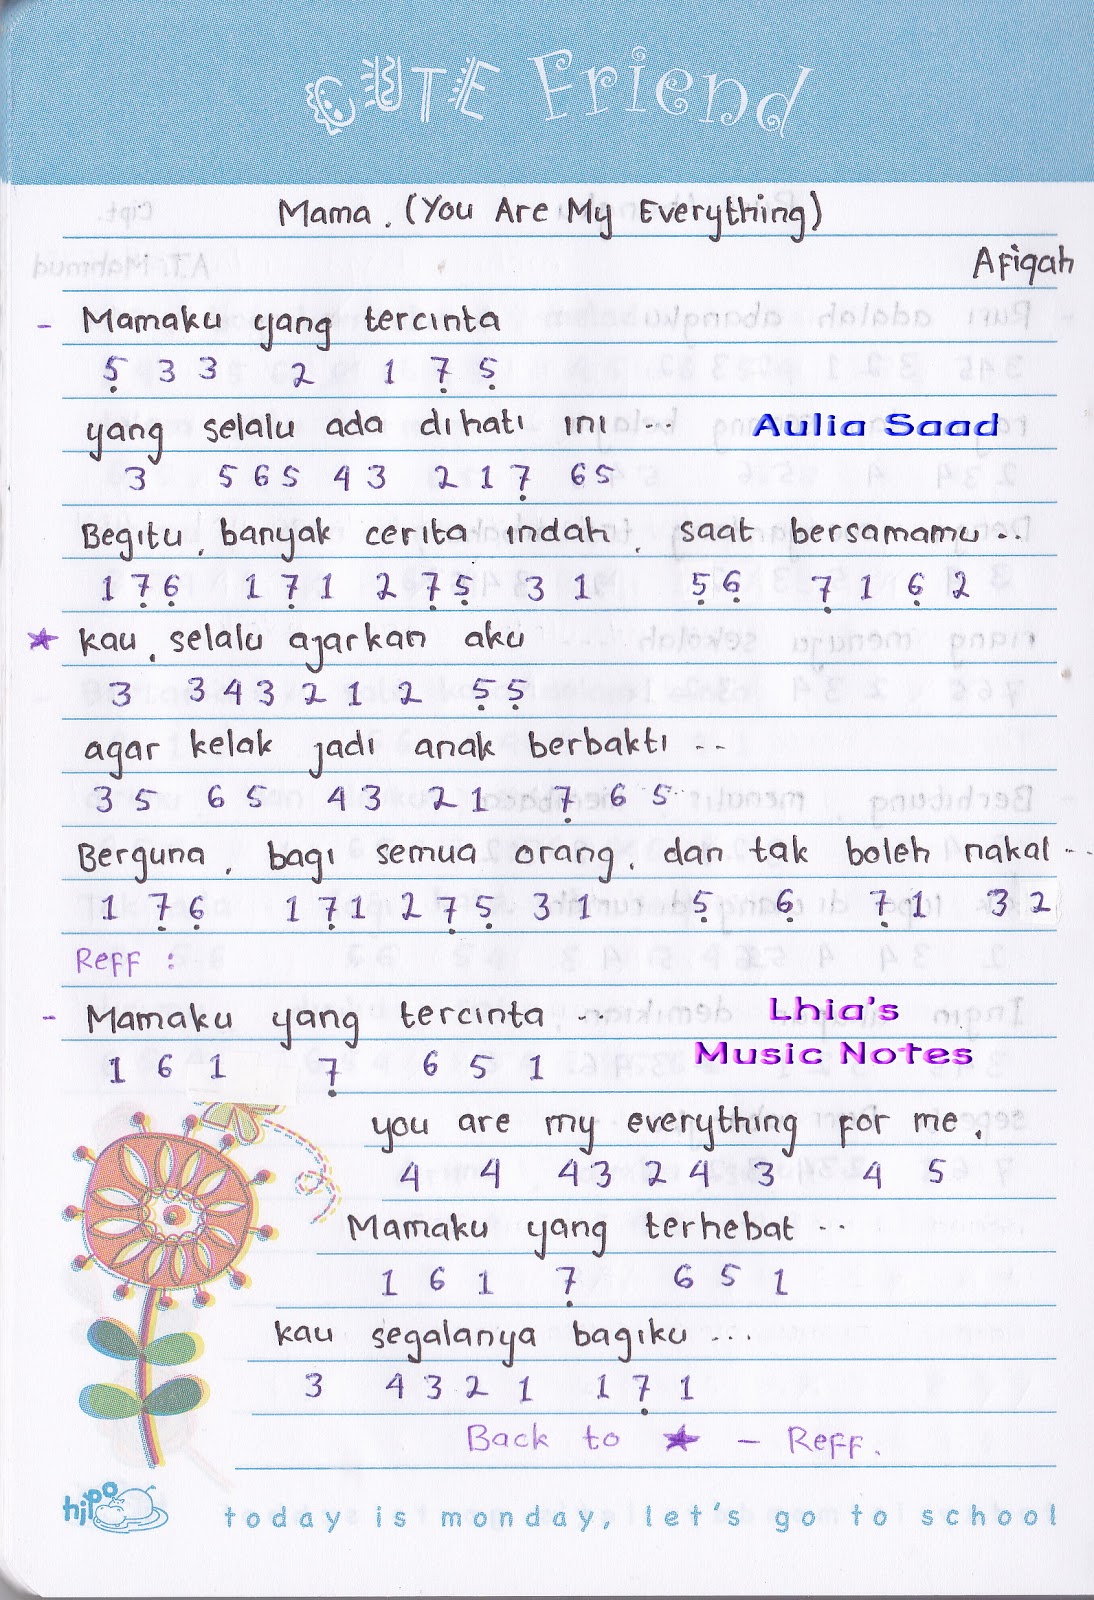 CUTE Friend
Mama. (You Are My Everything)
Afiqah
- Mamaku yang tercinta
5̣ 3 3 2 1 7̣ 5̣
yang selalu ada dihati ini ...
Aulia Saad
3 5 6 5 4 3 2 1 7̣ 6 5
Begitu, banyak cerita indah, saat bersamamu..
1 7̣ 6̣ 1 7̣ 1 2 7̣ 5̣ 3 1 5̣ 6̣ 7̣ 1 6̣ 2
★ kau, selalu ajarkan aku
3 3 4 3 2 1 2 5̣ 5̣
agar kelak jadi anak berbakti ..
3 5 6 5 4 3 2 1 7̣ 6 5
Berguna, bagi semua orang, dan tak boleh nakal ..
1 7̣ 6̣ 1 7̣ 1 2 7̣ 5̣ 3 1 5̣ 6̣ 7̣ 1 3 2
Reff :
- Mamaku yang tercinta ..
Lhia's
Music Notes
1 6 1 7̣ 6 5 1
you are my everything for me,
4 4 4 3 2 4 3 4 5
Mamaku yang terhebat ..
1 6 1 7̣ 6 5 1
kau segalanya bagiku ...
3 4 3 2 1 1 7̣ 1
Back to ★ - Reff.
hipo
today is monday, let's go to school